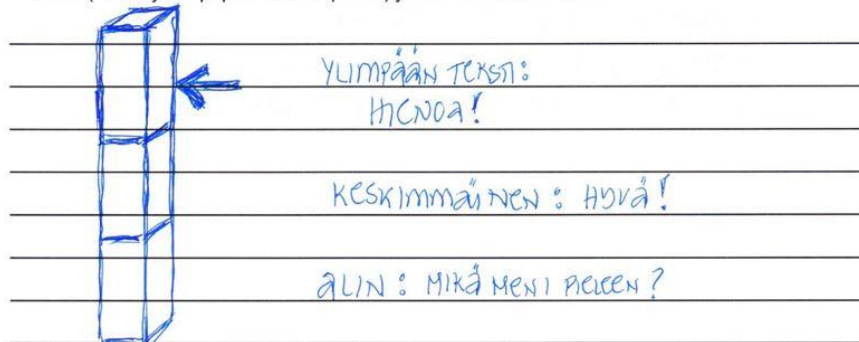 YLIMPÄÄN TEKSTI:
HIENOA!
KESKIMMÄINEN: HYVÄ!
ALIN: MIKÄ MENI PIELEEN?